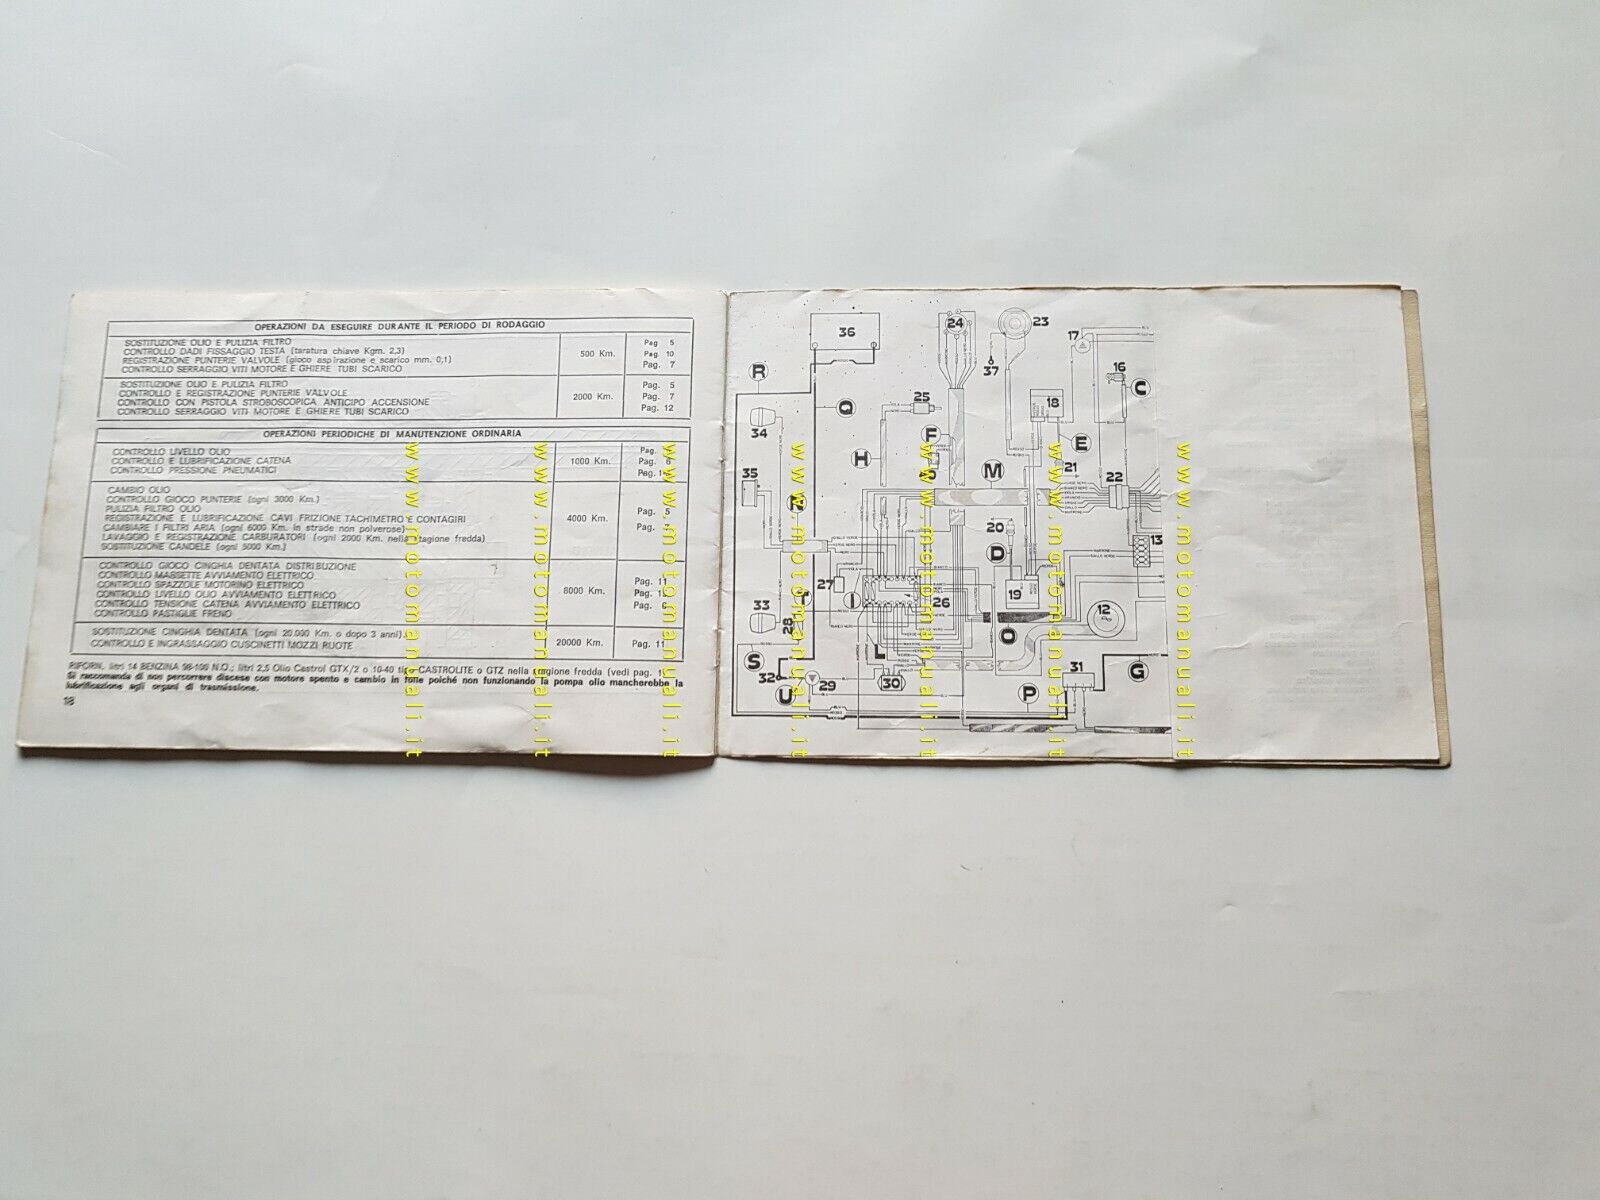 OPERAZIONI DA ESEGUIRE DURANTE IL PERIODO DI RODAGGIO
SOSTITUZIONE OLIO E PULIZIA FILTRO
CONTROLLO DADI FISSAGGIO TESTA (taratura chiave Kgm. 2,3)
REGISTRAZIONE PUNTERIE VALVOLE (gioco aspirazione e scarico mm. 0,1)
CONTROLLO SERRAGGIO VITI MOTORE E GHIERE TUBI SCARICO
500 Km.
Pag 5
Pag. 10
Pag. 7
SOSTITUZIONE OLIO E PULIZIA FILTRO
CONTROLLO E REGISTRAZIONE PUNTERIE VALVOLE
CONTROLLO CON PISTOLA STROBOSCOPICA ANTICIPO ACCENSIONE
CONTROLLO SERRAGGIO VITI MOTORE E GHIERE TUBI SCARICO
2000 Km.
Pag. 5
Pag. 7
Pag. 12
OPERAZIONI PERIODICHE DI MANUTENZIONE ORDINARIA
CONTROLLO LIVELLO OLIO
CONTROLLO E LUBRIFICAZIONE CATENA
CONTROLLO PRESSIONE PNEUMATICI
1000 Km.
Pag.
Pag. 6
Pag.
CAMBIO OLIO
CONTROLLO GIOCO PUNTERIE (ogni 3000 Km.)
PULIZIA FILTRO OLIO
REGISTRAZIONE E LUBRIFICAZIONE CAVI FRIZIONE TACHIMETRO E CONTAGIRI
CAMBIARE I FILTRI ARIA (ogni 6000 Km. in strade non polverose)
LAVAGGIO E REGISTRAZIONE CARBURATORI (ogni 2000 Km. nella stagione fredda)
SOSTITUZIONE CANDELE (ogni 5000 Km.)
4000 Km.
Pag. 5
Pag. 7
CONTROLLO GIOCO CINGHIA DENTATA DISTRIBUZIONE
CONTROLLO MASSETTE AVVIAMENTO ELETTRICO
CONTROLLO SPAZZOLE MOTORINO ELETTRICO
CONTROLLO LIVELLO OLIO AVVIAMENTO ELETTRICO
CONTROLLO TENSIONE CATENA AVVIAMENTO ELETTRICO
CONTROLLO PASTIGLIE FRENO
8000 Km.
Pag. 11
Pag.
Pag. 6
SOSTITUZIONE CINGHIA DENTATA (ogni 20.000 Km. o dopo 3 anni).
CONTROLLO E INGRASSAGGIO CUSCINETTI MOZZI RUOTE
20000 Km.
Pag. 11
RIFORN. litri 14 BENZINA 98-100 N.O.; litri 2,5 Olio Castrol GTX/2 o 10-40 tipo CASTROLITE o GTZ nella stagione fredda (vedi pag.
Si raccomanda di non percorrere discese con motore spento e cambio in folle poiché non funzionando la pompa olio mancherebbe la
lubrificazione agli organi di trasmissione.
18
36
24
23
17
37
16
R
C
25
18
34
Q
F
E
H
M
21
22
35
20
D
13
27
26
19
12
33
T
I
28
O
S
31
32
29
30
P
G
U
www.motomanuali.it
www.motomanuali.it
www.motomanuali.it
www.motomanuali.it
www.motomanuali.it
www.motomanuali.it
www.motomanuali.it